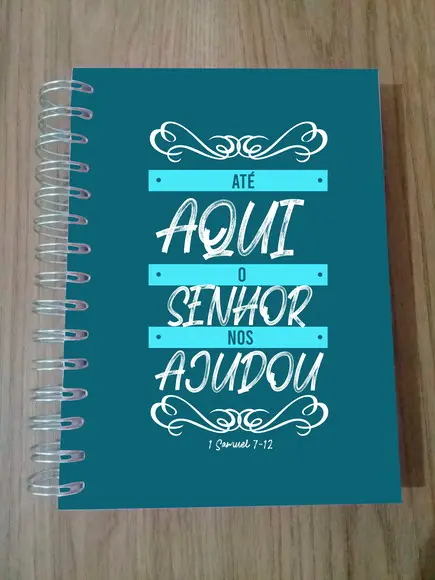 ATÉ
AQUI
O
SENHOR
NOS
AJUDOU
1 Samuel 7-12